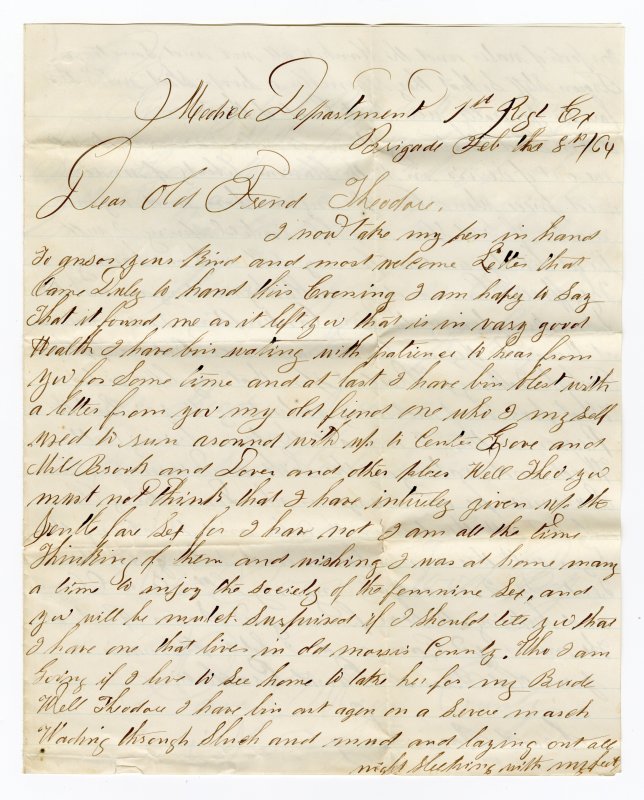 Medicle Department 1st Regt Ex
Brigade Feb the 8th/64
Dear Old Frend Theodore,
I now take my pen in hand
To ansor your Kind and most welcome Letter that
Came Duly to hand this Evening I am hapey to Say
that it found me as it left you that is in vary good
Health I have bin wating with patience to hear from
you for Some time and at last I have bin blest with
a letter from you my old friend one who I my self
used to run around with up to Center Grove and
Mil Brook and Dover and other places Well Theo you
must not think that I have intirely given up the
gentle fare Sex for I have not I am all the time
thinking of them and wishing I was at home many
a time to injoy the society of the feminine Sex, and
you will be mutch Surprised if I should tell you that
I have one that lives in old morris County. Who I am
Going if I live to See home to take her for my Bride
Well Theodore I have bin out agen on a Severe march
Wading through Slush and mud and laying out all
night sleeping with my feet